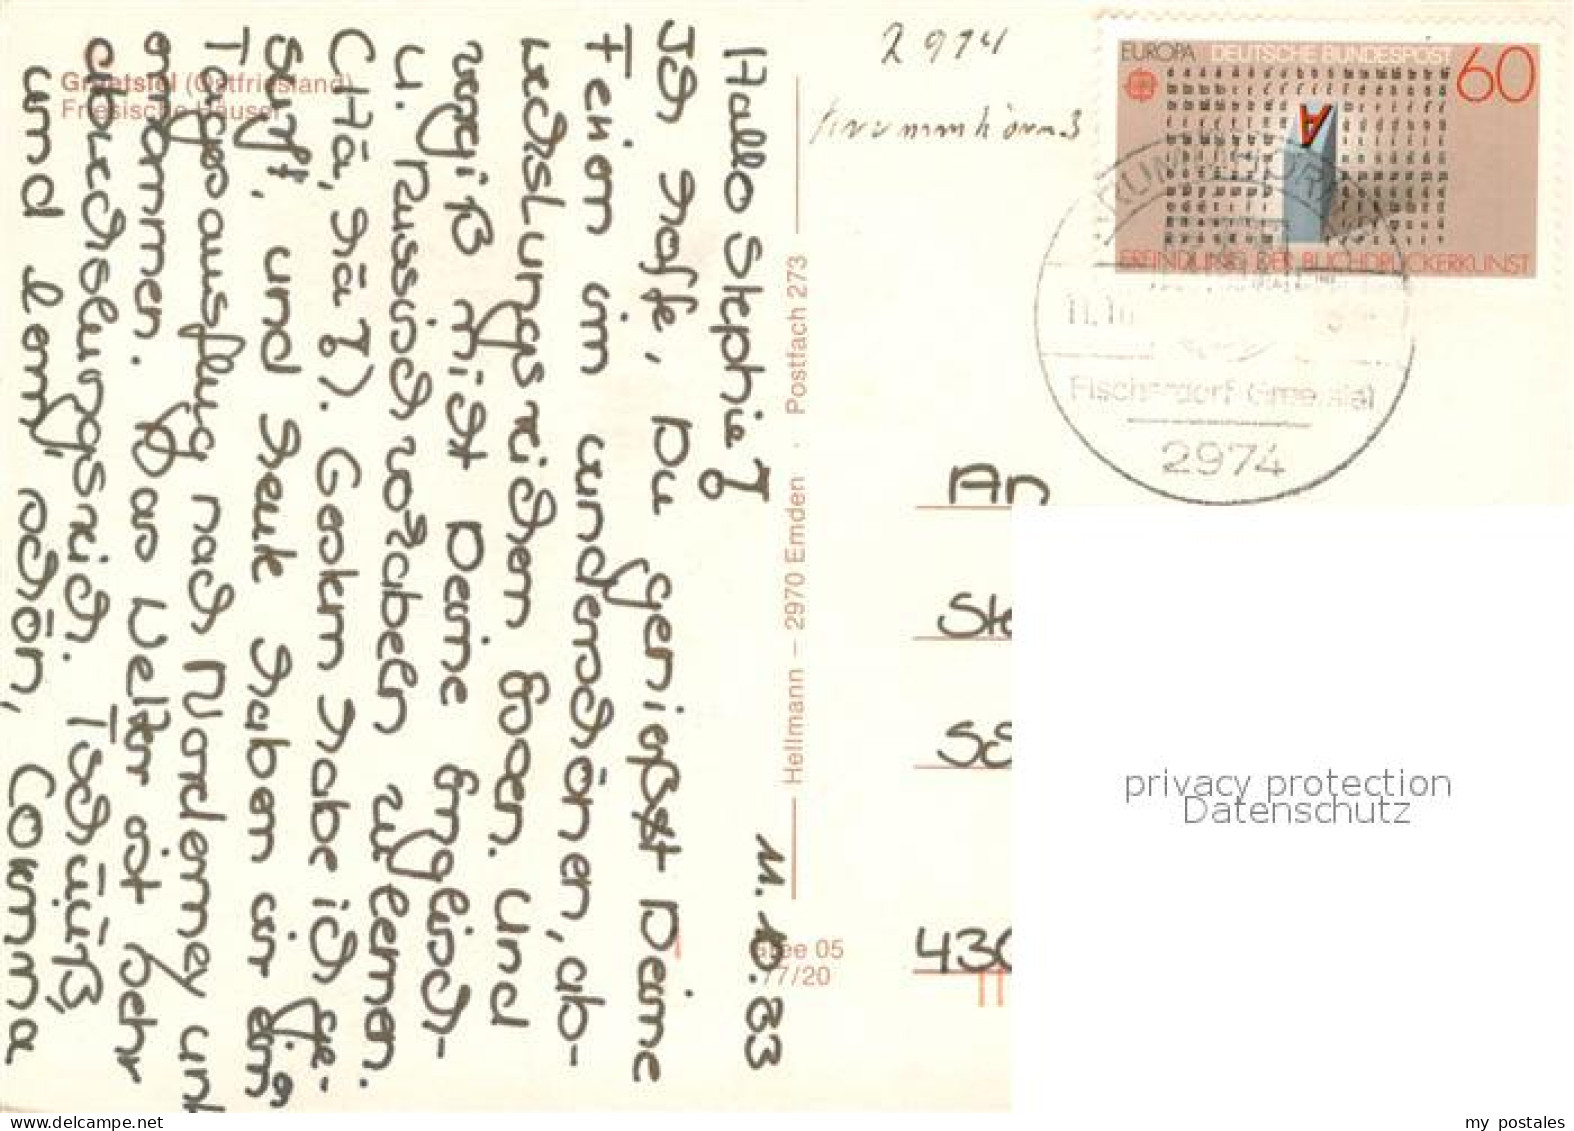 Greetsiel (Ostfriesland)
Friesische Häuser
11.10.83
Hallo Stephie!
Ich hoffe, Du genießt Deine
Ferien im wunderschönen, ab-
wechslungsreichen Essen. Und
vergiß nicht Deine Englisch-
u. Russischvokabeln zu lernen.
(Hä, hä!). Gestern habe ich ge-
surft, und heute haben wir ein
Tagesausflug nach Norderney un
nommen. Das Wetter ist sehr
abwechslungsreich. Tschüß,
und lern schön, Corinna
Hellmann – 2970 Emden · Postfach 273
Gree 05
77/20
2974
Krummhörn 3
EUROPA DEUTSCHE BUNDESPOST 60
ERFINDUNG DER BUCHDRUCKERKUNST
KRUMMHÖRN
11.10
Fischerdorf Greetsiel
2974
An
Ste
Sch
430
privacy protection
Datenschutz
my postales